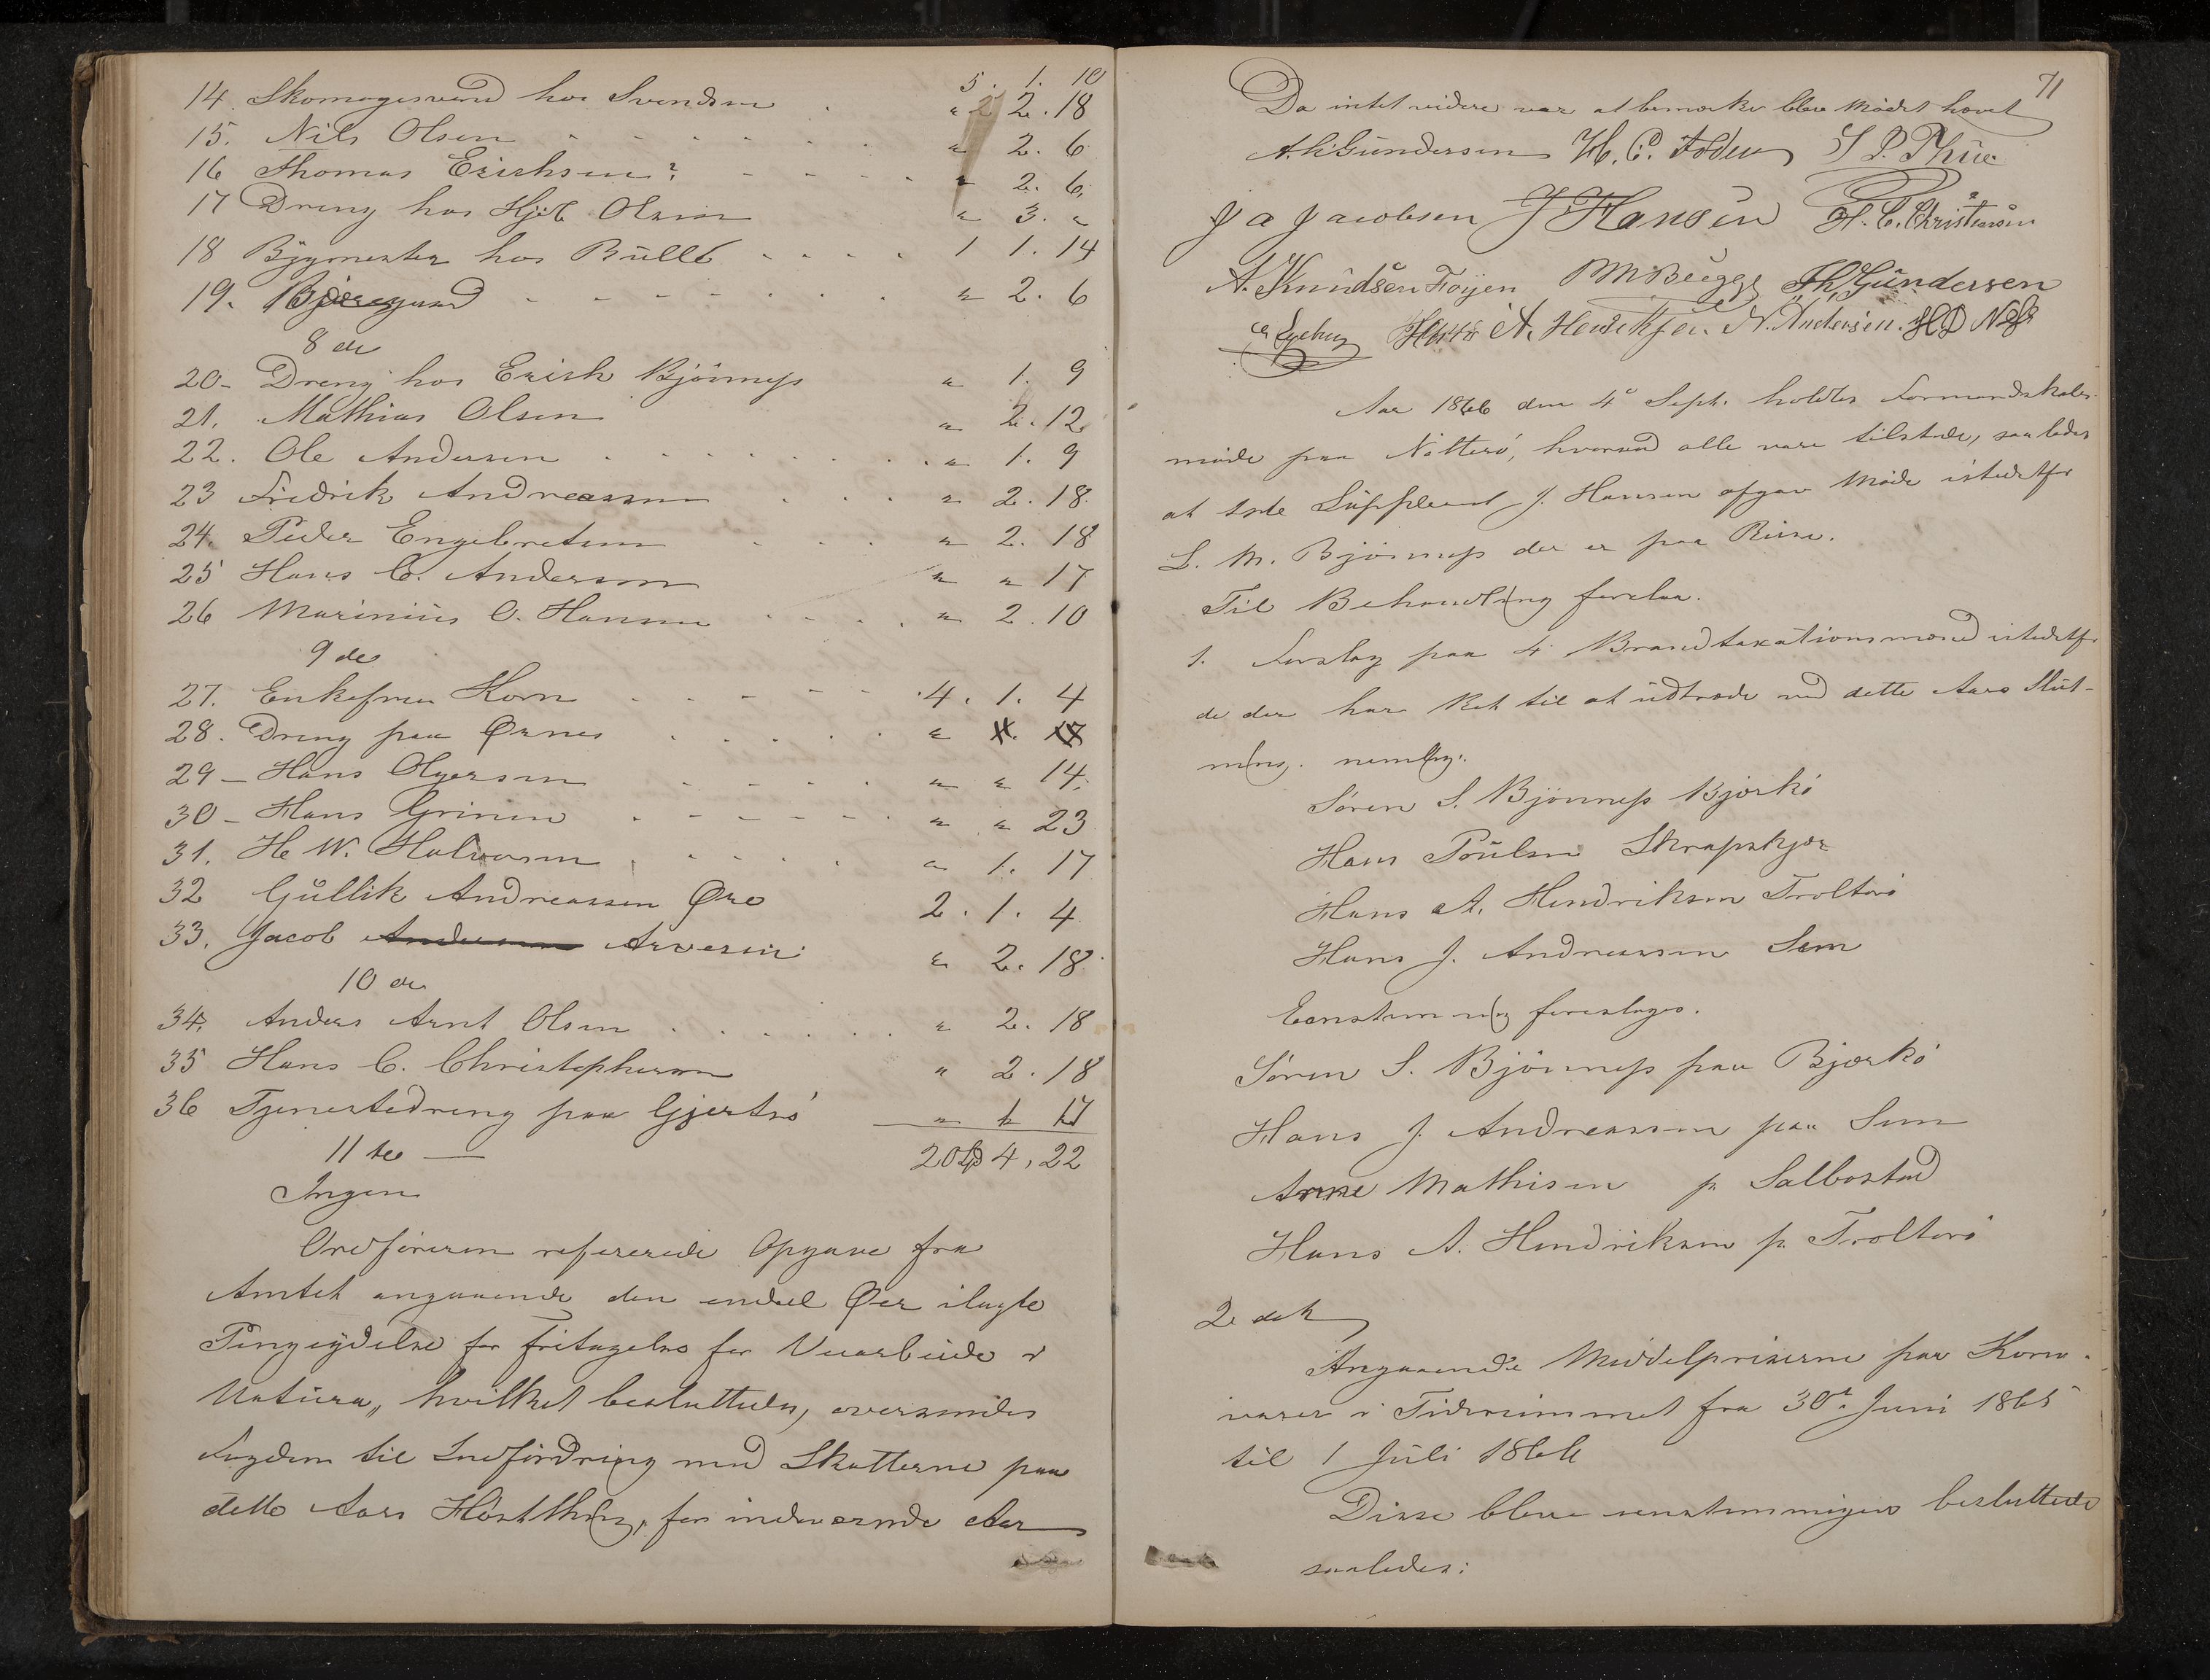 5. 1. 10
14. Skomagersvend hos Svendsen . " 2. 18
15. Nils Olsen - - - - - " 2. 6
16 Thomas Erichsen? - - - - " 2. 6.
17 Dreng hos Hjel Olsen " 3. "
18 Bygmester hos Bull - - - - 1 1. 14
19. - - - - - - " 2. 6
8de
20- Dreng hos Erich Bjönness " 1. 9
21. Mathias Olsen " 2. 12
22. Ole Andersen . . . . . . " 1. 9
23 Fredrik Andreassen . . . " 2. 18
24. Peder Engebretsen . . . " 2. 18
25 Hans C. Anderson " " 17
26 Marinius O. Hansen . . . . " 2. 10
9de
27. Enkefru Korn - - - - - 4. 1. 4
28. Dreng paa Ørnes . . . . . "
29- Hans Olgersen - - - - " " 14.
30- Hans Grinen - - - - - " " 23
31. H. W. Halvorsen . . . . . " 1. 17
32 Gullik Andreassen Øre 2. 1. 4
33. Jacob Arvesen " 2. 18
10de
34. Anders Arnt Olsen . . . . . . " 2. 18
35 Hans C. Christophersen " 2. 18
36 Tjenestedreng paa Gjertsö " 1 17
11te — 20 4. 22
Ingen
Ordføreren refererede Opgave fra
Amtet angaaende den endeel Øer ilagte
Pengeydelse for Fritagelse for Veiarbeide i
Natura, hvilket besluttedes, oversendes
Fogden til Indfordring med Skatterne paa
dette Aars Høstthing, for indeværende Aar
71
Da intet videre var at bemærke blev Mødet hævet
A. H. Gundersen H. C. Foden
J a Jacobsen J Hansen H. C. Christensen
A. Knudsen Föyen M Bugge Th Gundersen
Hans A. Hendriksen. N. Andersen. H D Næss
Aar 1866 den 4de Sept. holdtes Formandskabs-
møde paa Nötterö, hvorved alle vare tilstede, saaledes
at 1ste Suppleant J. Hansen afgav Møde istedetfor
L. M. Bjönness der er paa Reise.
Til Behandling forelaa.
1. Forslag paa 4 Brandtaxationsmænd istedetfor
de der har Ret til at udtræde ved dette Aars Slut-
ning. nemlig:
Sören S. Bjönness Bjerkö
Hans Poulsen Skrapskjær
Hans A. Hendriksen Troltvö
Hans J. Andreassen Sem
Eenstemmig foreslages.
Sören S. Bjönness paa Bjerkö
Hans J. Andreassen paa Sem
Arne Mathisen p. Salbostad
Hans A. Hendriksen p. Troltvö
2det
Angaaende Middelpriserne paa Korn-
varer i Tidsrummet fra 30te Juni 1865
til 1 Juli 1866
Disse bleve eenstemmigen besluttede
saaledes: